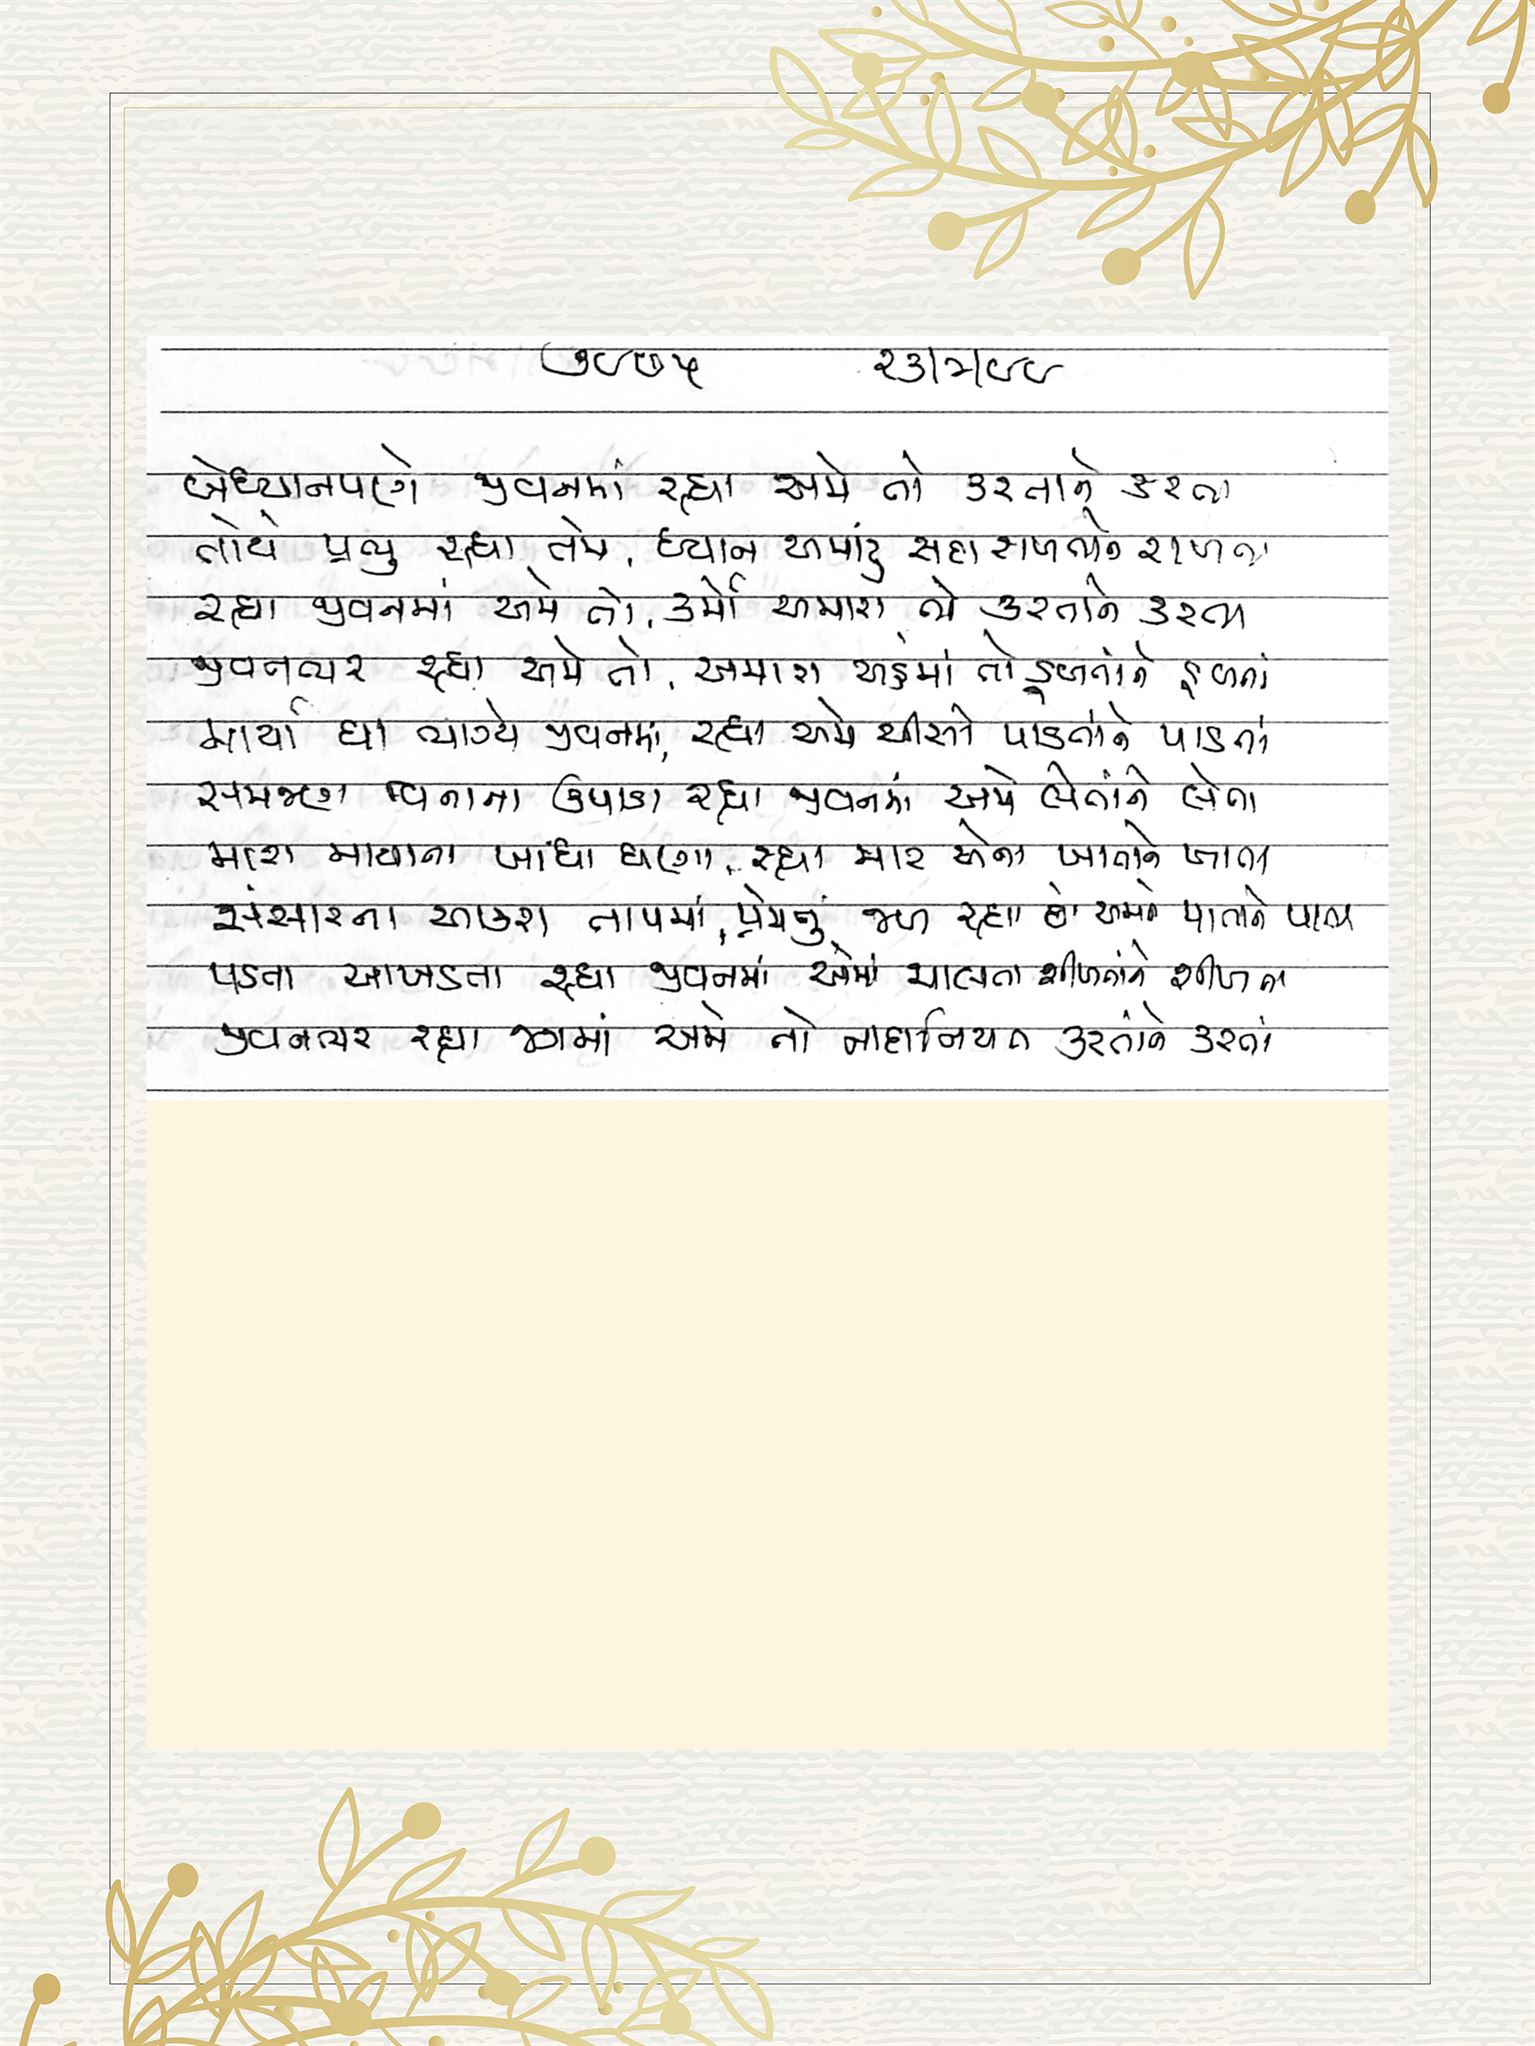 ૭૯૭૫ ૨૩/૨/૯૯
બેધ્યાનપણે જીવનમાં રહ્યા અમે તો કરતાને કરતા
તોયે પ્રભુ રહ્યા તમે, ધ્યાન અમારું સદા રાખતાને રાખતા
રહ્યા જીવનમાં અમે તો, કર્મો અમારા તો કરતાને કરતા
જીવનભર રહ્યા અમે તો, અમારા અહંમાં તો ડૂબતાંને ડૂબતાં
માર્યા ઘા ભાગ્યે જીવનમાં, રહ્યા અમે ચીસો પાડતાંને પાડતાં
સમજણ વિનાના ઉપાડા રહ્યા જીવનમાં અમે લેતાંને લેતા
મારા માયાના બાંધા ઘણા, રહ્યા માર એના ખાતાને ખાતા
સંસારના આકરા તાપમાં, પ્રેમનું જળ રહ્યા છો અમને પાતાને પાતા
પડતા આખડતા રહ્યા જીવનમાં એમાં ચાલતા શીખતાંને શીખતા
જીવનભર રહ્યા જગમાં અમે તો નાદાનિયત કરતાંને કરતાં